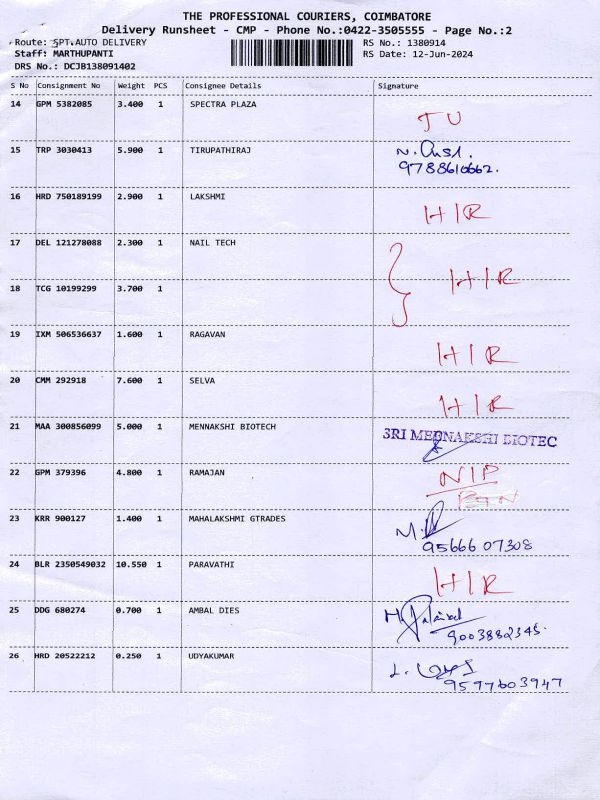 THE PROFESSIONAL COURIERS, COIMBATORE
Delivery Runsheet - CMP - Phone No.:0422-3505555 - Page No.:2
Route: SPT.AUTO DELIVERY RS No.: 1380914
Staff: MARTHUPANTI RS Date: 12-Jun-2024
DRS No.: DCJB138091402
S No Consignment No Weight PCS Consignee Details Signature
14 GPM 5382085 3.400 1 SPECTRA PLAZA
15 TRP 3030413 5.900 1 TIRUPATHIRAJ
9788610662.
16 HRD 750189199 2.900 1 LAKSHMI HIR
17 DEL 121278088 2.300 1 NAIL TECH HIR
18 TCG 10199299 3.700 1
19 IXM 506536637 1.600 1 RAGAVAN HIR
20 CMM 292918 7.600 1 SELVA HIR
21 MAA 300856099 5.000 1 MENNAKSHI BIOTECH SRI MEENAKSHI BIOTEC
22 GPM 379396 4.800 1 RAMAJAN NIP
RTN
23 KRR 900127 1.400 1 MAHALAKSHMI GTRADES
95666 07308
24 BLR 2350549032 10.550 1 PARAVATHI HIR
25 DDG 680274 0.700 1 AMBAL DIES
9003882345.
26 HRD 20522212 0.250 1 UDYAKUMAR
9597603947